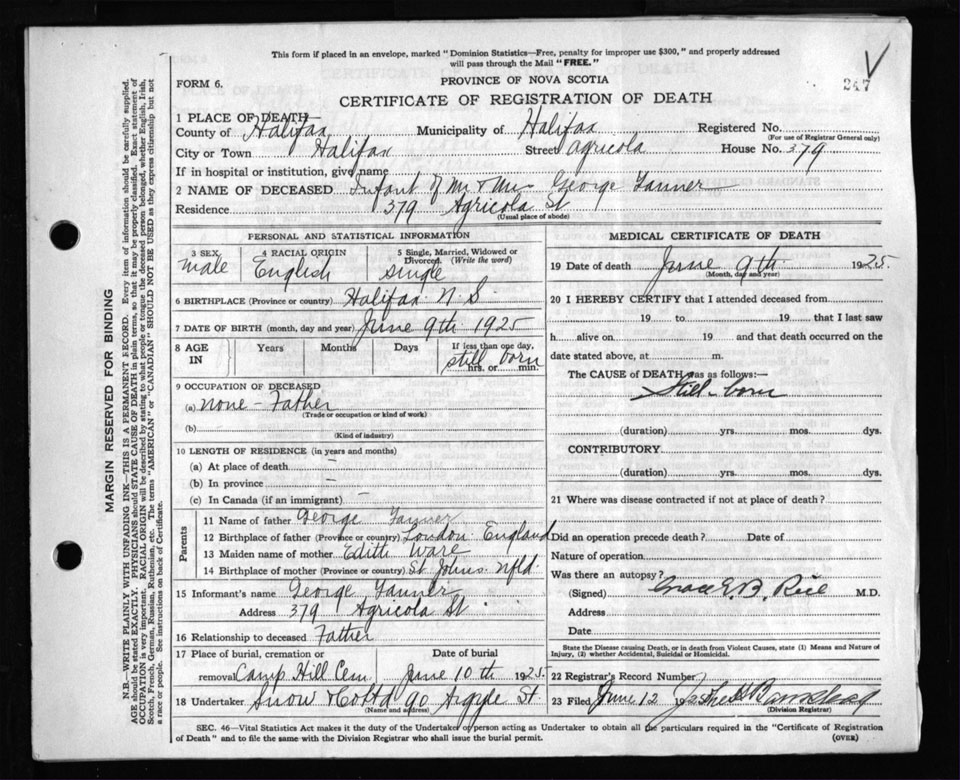 This form if placed in an envelope, marked "Dominion Statistics—Free, penalty for improper use $300," and properly addressed
will pass through the Mail "FREE."
FORM 6.
PROVINCE OF NOVA SCOTIA
247
CERTIFICATE OF REGISTRATION OF DEATH
1 PLACE OF DEATH—
County of Halifax Municipality of Halifax Registered No.
(For use of Registrar General only)
City or Town Halifax Street Agricola House No. 379
If in hospital or institution, give name
2 NAME OF DECEASED Infant of Mr & Mrs George Tanner
Residence 379 Agricola St
(Usual place of abode)
PERSONAL AND STATISTICAL INFORMATION
3 SEX male
4 RACIAL ORIGIN English
5 Single, Married, Widowed or Divorced (Write the word) single
6 BIRTHPLACE (Province or country) Halifax N. S.
7 DATE OF BIRTH (month, day and year) June 9th 1925
8 AGE IN Years Months Days If less than one day, still born hrs. or min.
9 OCCUPATION OF DECEASED
(a) none - Father
(Trade or occupation or kind of work)
(b)
(Kind of industry)
10 LENGTH OF RESIDENCE (in years and months)
(a) At place of death —
(b) In province —
(c) In Canada (if an immigrant) —
Parents
11 Name of father George Tanner
12 Birthplace of father (Province or country) London England
13 Maiden name of mother Edith Ware
14 Birthplace of mother (Province or country) St Johns Nfld.
15 Informant's name George Tanner
Address 379 Agricola St
16 Relationship to deceased Father
17 Place of burial, cremation or removal Camp Hill Cem
Date of burial June 10th 1925
18 Undertaker Snow & Co Ltd 90 Argyle St
(Name and address)
MEDICAL CERTIFICATE OF DEATH
19 Date of death June 9th 1925.
(Month, day and year)
20 I HEREBY CERTIFY that I attended deceased from
19 to 19 that I last saw
h alive on 19 and that death occurred on the
date stated above, at m.
The CAUSE of DEATH was as follows:—
Still-born
(duration) yrs. mos. dys.
CONTRIBUTORY
(duration) yrs. mos. dys.
21 Where was disease contracted if not at place of death?
Did an operation precede death? Date of
Nature of operation
Was there an autopsy?
(Signed) Grace E. B. Rice M.D.
Address
Date
State the Disease causing Death, or in death from Violent Causes, state (1) Means and Nature of
Injury, (2) whether Accidental, Suicidal or Homicidal.
22 Registrar's Record Number
23 Filed June 12 1925
(Division Registrar)
SEC. 46—Vital Statistics Act makes it the duty of the Undertaker or person acting as Undertaker to obtain all the particulars required in the "Certificate of Registration
of Death" and to file the same with the Division Registrar who shall issue the burial permit.
(OVER)
MARGIN RESERVED FOR BINDING
N.B.—WRITE PLAINLY WITH UNFADING INK—THIS IS A PERMANENT RECORD. Every item of information should be carefully supplied.
AGE should be stated EXACTLY. PHYSICIANS should STATE CAUSE OF DEATH in plain terms, so that it may be properly classified. Exact statement of
OCCUPATION is very important. RACIAL ORIGIN will be described by stating to what people or tongue the deceased person belonged, whether English, Irish,
Scotch, French, German, Russian, Ruthenian, etc. The terms "AMERICAN" or "CANADIAN" SHOULD NOT BE USED as they express citizenship but not
a race or people. See instructions on back of Certificate.